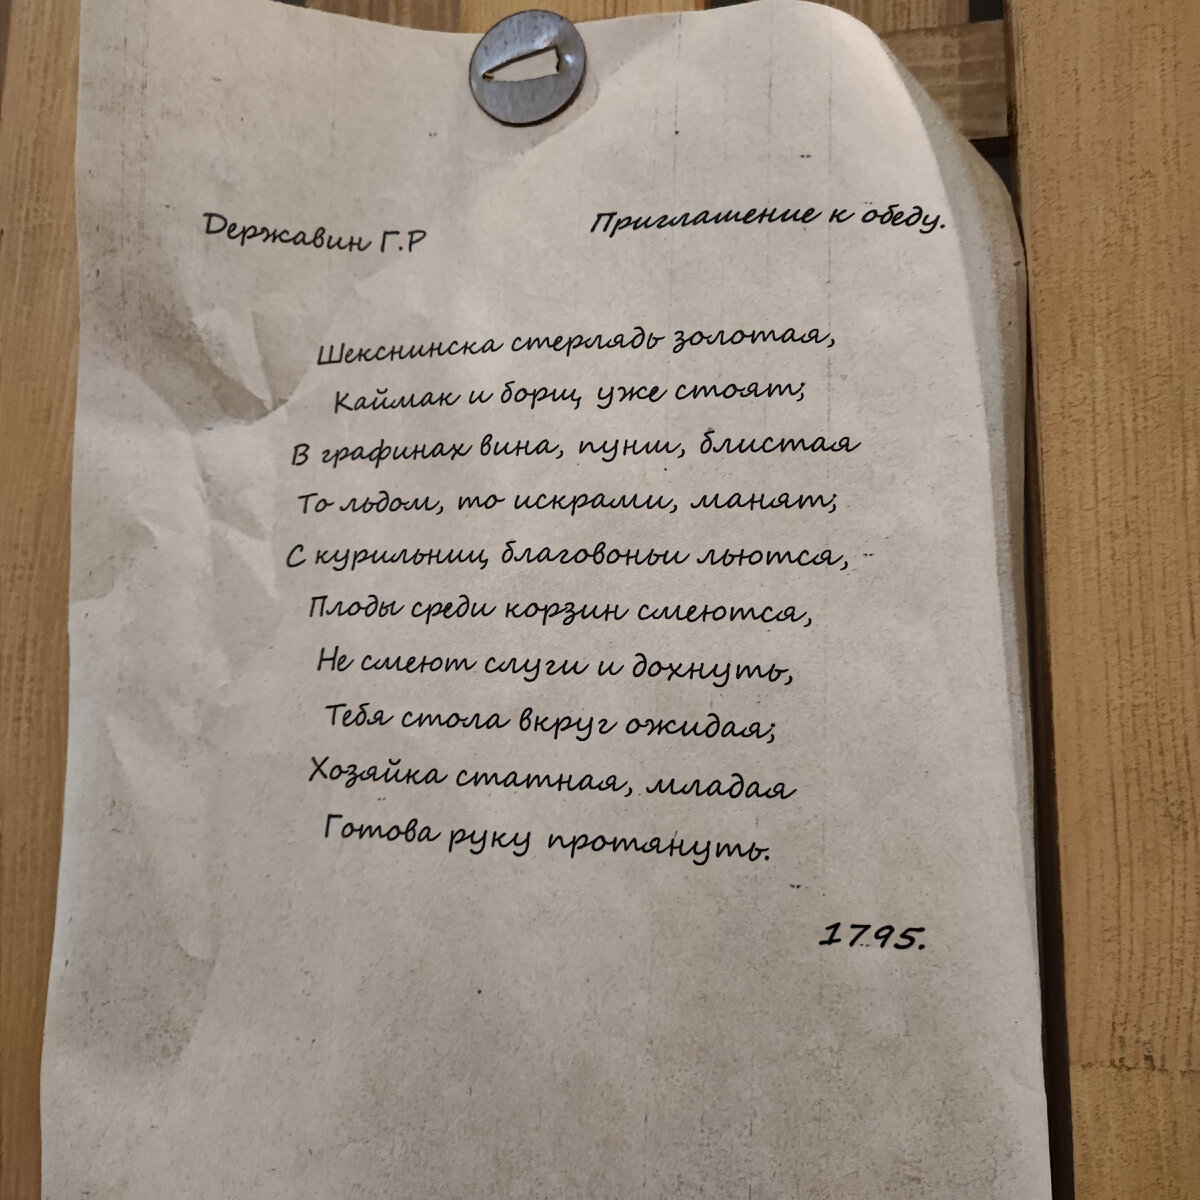 Державин Г.Р
Приглашение к обеду.
Шекснинска стерлядь золотая,
Каймак и борщ уже стоят;
В графинах вина, пунш, блистая
То льдом, то искрами, манят;
С курильниц благовоньи льются,
Плоды среди корзин смеются,
Не смеют слуги и дохнуть,
Тебя стола вкруг ожидая;
Хозяйка статная, младая
Готова руку протянуть.
1795.